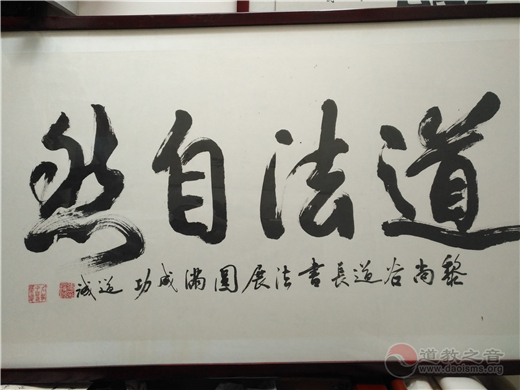 道法自然
黎尚谷道長書法展圓滿成功 道誠
道教之音
www.daoisms.org